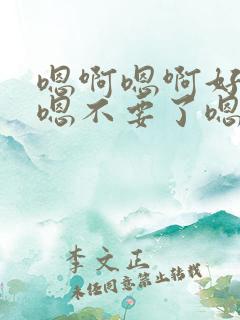 嗯啊嗯啊好
嗯不要了嗯
李文正
未经同意禁止转载